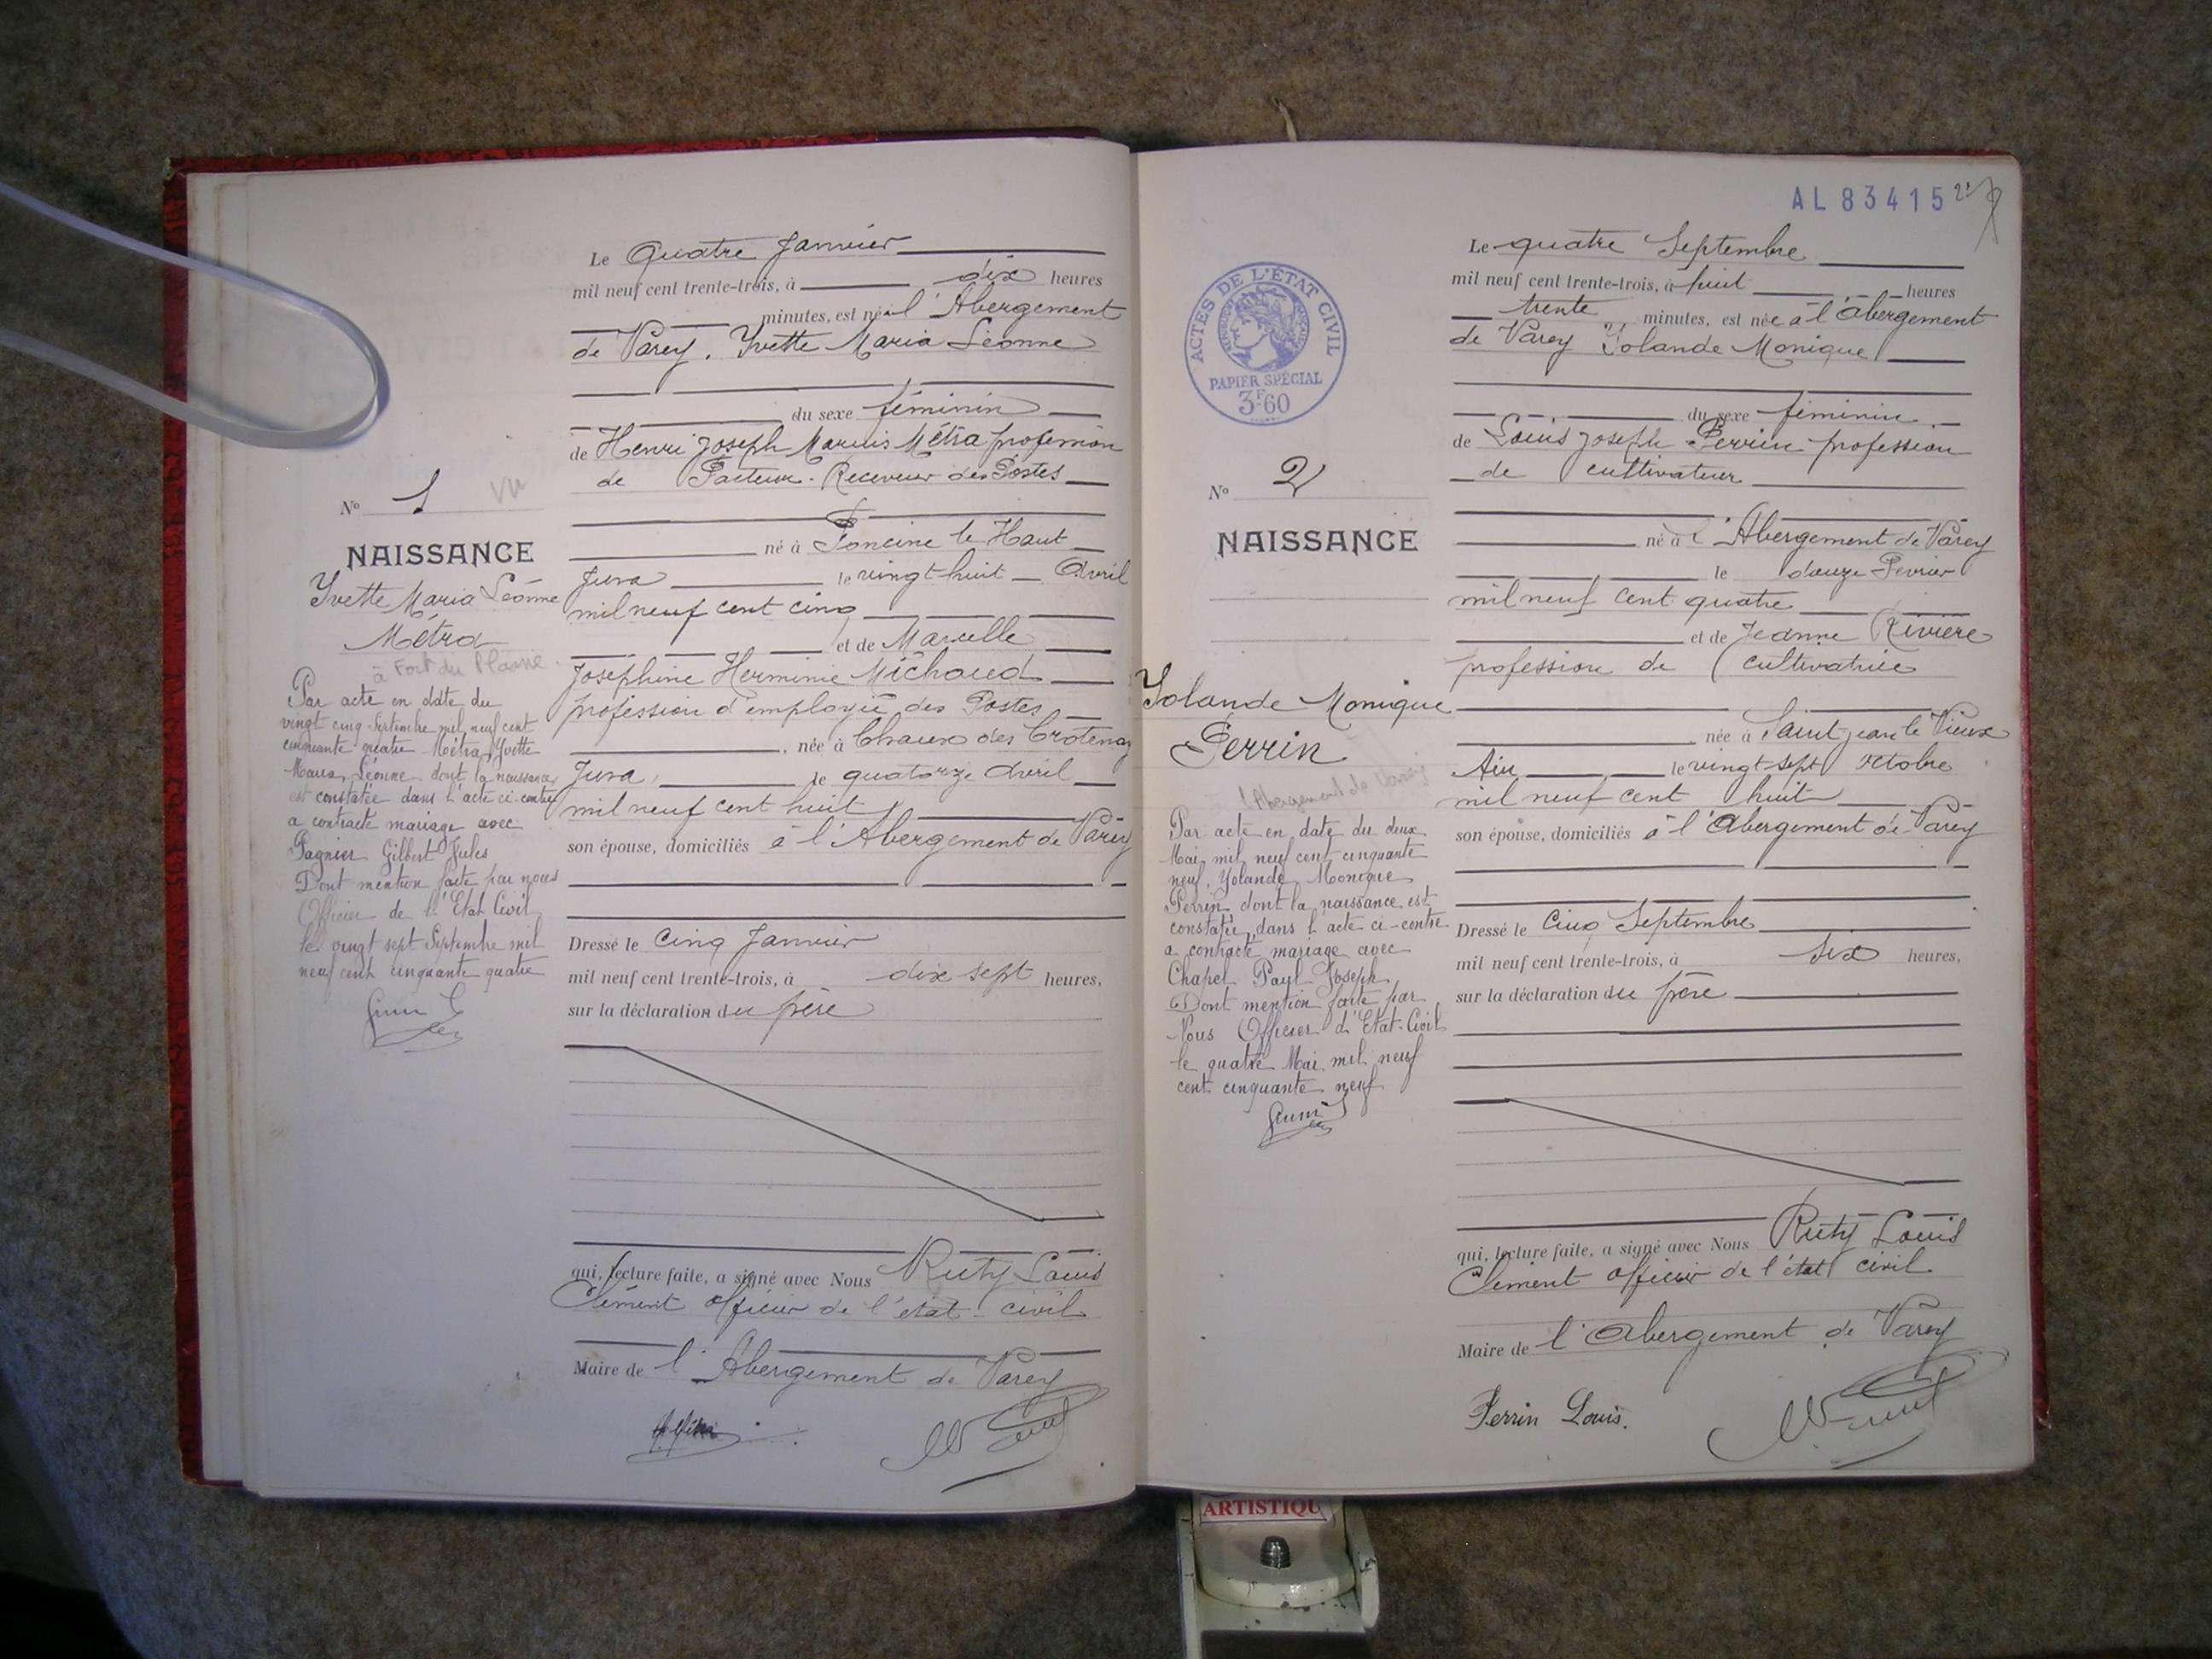 Le Quatre Janvier
mil neuf cent trente-trois, à dix heures
minutes, est née à l'Abergement
de Varey, Yvette Maria Léonne
du sexe féminin
de Henri Joseph Marius Métra profession
de Facteur-Receveur des Postes
N° 1 vu
né à Foncine le Haut
NAISSANCE
Jura le vingt-huit Avril
Yvette Maria Léonne
mil neuf cent cinq
Métra
et de Marcelle
à Fort du Plasne
Joséphine Herminie Michaud
profession d'employée des Postes
née à Chaux des Crotenay
Jura, le quatorze Avril
mil neuf cent huit
son épouse, domiciliés à l'Abergement de Varey
Par acte en date du
vingt cinq Septembre mil neuf cent
cinquante quatre Métra Yvette
Maria, Léonne dont la naissance
est constatée dans l'acte ci-contre
a contracté mariage avec
Pagnier Gilbert Jules
Dont mention faite par nous
Officier de l'Etat Civil
le vingt sept Septembre mil
neuf cent cinquante quatre
Dressé le Cinq Janvier
mil neuf cent trente-trois, à dix sept heures,
sur la déclaration du père
qui, lecture faite, a signé avec Nous Ruty Louis
Clément officier de l'état-civil
Maire de l'Abergement de Varey
AL 83415
Le quatre Septembre
mil neuf cent trente-trois, à huit heures
trente minutes, est née à l'Abergement
de Varey Yolande Monique
ACTES DE L'ÉTAT CIVIL
PAPIER SPÉCIAL
3F60
du sexe féminin
de Louis Joseph Perrin profession
de cultivateur
N° 2
NAISSANCE
né à l'Abergement de Varey
le douze Fevrier
mil neuf cent quatre
et de Jeanne Rivière
profession de cultivatrice
Yolande Monique
Perrin
née à Saint Jean le Vieux
Ain le vingt-sept Octobre
mil neuf cent huit
l'Abergement de Varey
son épouse, domiciliés à l'Abergement de Varey
Par acte en date du deux
Mai mil neuf cent cinquante
neuf, Yolande Monique
Perrin dont la naissance est
constatée dans l'acte ci-contre
a contracté mariage avec
Chapel Paul Joseph
Dont mention faite par
Nous Officier d'Etat-Civil
le quatre Mai mil neuf
cent cinquante neuf
Dressé le Cinq Septembre
mil neuf cent trente-trois, à six heures,
sur la déclaration du père
qui, lecture faite, a signé avec Nous Ruty Louis
Clément officier de l'état civil
Maire de l'Abergement de Varey
Perrin Louis.
ARTISTIQU